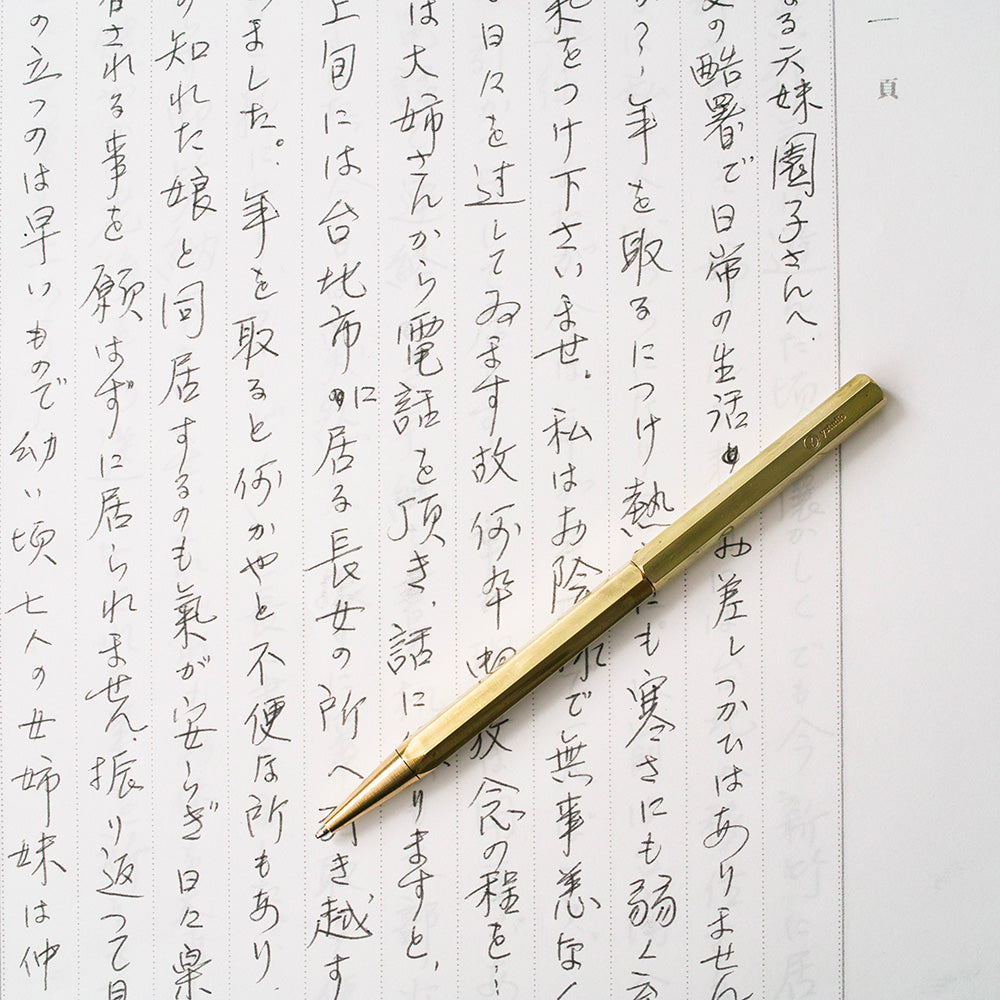 一頁
る六妹園子さんへ.
の酷署で日常の生活 お差しつかひはありません
か?年を取るにつけ熱 にも寒さにも弱く
をつけ下さいませ。私はお陰 で無事恙な
日々を过してゐます故何卒 放念の程を…
は大姉さんから電話を頂き、話に りますと、
上旬には台北市に居る長女の所へ引き越す
ました。年を取ると何かやと不便な所もあり
の知れた娘と同居するのも氣が安らぎ日々
される事を願はずに居られません、振り返つて見
の立つのは早いもので幼い頃七人の女姉妹は仲
ystudio